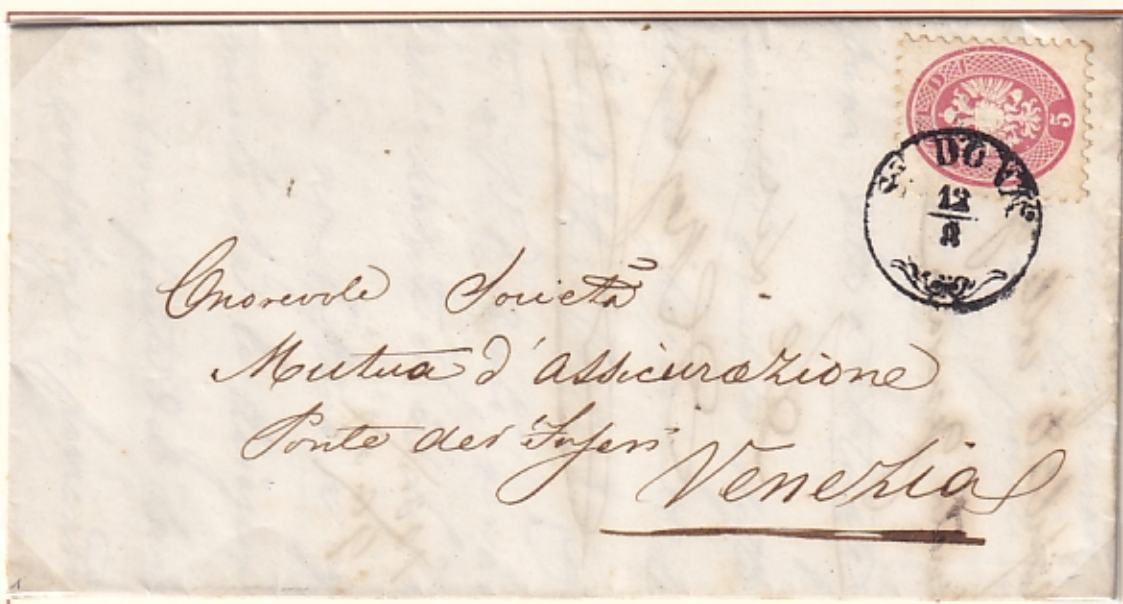 5
12
8
Onorevole Società
Mutua d'assicurazione
Ponte dei
Venezia